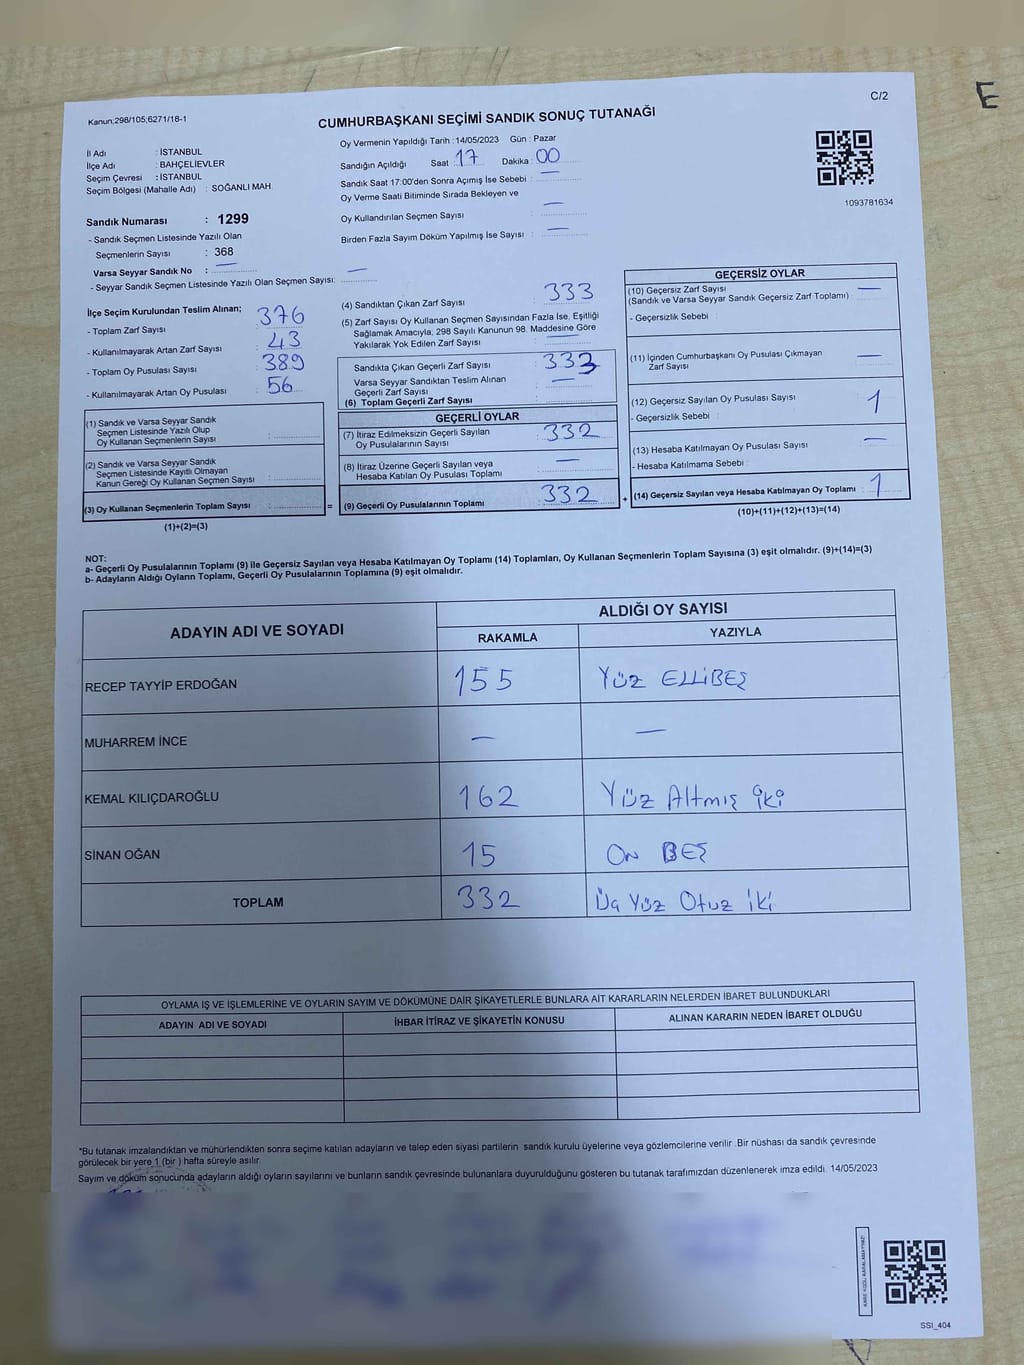 C/2
E
Kanun;298/105;6271/18-1
CUMHURBAŞKANI SEÇİMİ SANDIK SONUÇ TUTANAĞI
İl Adı : İSTANBUL
İlçe Adı : BAHÇELİEVLER
Seçim Çevresi : İSTANBUL
Seçim Bölgesi (Mahalle Adı) : SOĞANLI MAH.
Sandık Numarası : 1299
- Sandık Seçmen Listesinde Yazılı Olan
Seçmenlerin Sayısı : 368
Varsa Seyyar Sandık No : —
- Seyyar Sandık Seçmen Listesinde Yazılı Olan Seçmen Sayısı: —
Oy Vermenin Yapıldığı Tarih : 14/05/2023 Gün : Pazar
Sandığın Açıldığı Saat : 17 Dakika : 00
Sandık Saat 17:00'den Sonra Açımış İse Sebebi : —
Oy Verme Saati Bitiminde Sırada Bekleyen ve
Oy Kullandırılan Seçmen Sayısı : —
Birden Fazla Sayım Döküm Yapılmış İse Sayısı : —
1093781634
İlçe Seçim Kurulundan Teslim Alınan;
- Toplam Zarf Sayısı : 376
- Kullanılmayarak Artan Zarf Sayısı : 43
- Toplam Oy Pusulası Sayısı : 389
- Kullanılmayarak Artan Oy Pusulası : 56
(1) Sandık ve Varsa Seyyar Sandık
Seçmen Listesinde Yazılı Olup
Oy Kullanan Seçmenlerin Sayısı :
(2) Sandık ve Varsa Seyyar Sandık
Seçmen Listesinde Kayıtlı Olmayan
Kanun Gereği Oy Kullanan Seçmen Sayısı :
(3) Oy Kullanan Seçmenlerin Toplam Sayısı : =
(1)+(2)=(3)
(4) Sandıktan Çıkan Zarf Sayısı : 333
(5) Zarf Sayısı Oy Kullanan Seçmen Sayısından Fazla İse, Eşitliği
Sağlamak Amacıyla; 298 Sayılı Kanunun 98. Maddesine Göre
Yakılarak Yok Edilen Zarf Sayısı : —
Sandıkta Çıkan Geçerli Zarf Sayısı : 333
Varsa Seyyar Sandıktan Teslim Alınan
Geçerli Zarf Sayısı : —
(6) Toplam Geçerli Zarf Sayısı :
GEÇERLİ OYLAR
(7) İtiraz Edilmeksizin Geçerli Sayılan
Oy Pusulalarının Sayısı : 332
(8) İtiraz Üzerine Geçerli Sayılan veya
Hesaba Katılan Oy Pusulası Toplamı : —
(9) Geçerli Oy Pusulalarının Toplamı : 332 +
GEÇERSİZ OYLAR
(10) Geçersiz Zarf Sayısı
(Sandık ve Varsa Seyyar Sandık Geçersiz Zarf Toplamı) : —
- Geçersizlik Sebebi :
(11) İçinden Cumhurbaşkanı Oy Pusulası Çıkmayan
Zarf Sayısı : —
(12) Geçersiz Sayılan Oy Pusulası Sayısı : 1
- Geçersizlik Sebebi :
(13) Hesaba Katılmayan Oy Pusulası Sayısı : —
- Hesaba Katılmama Sebebi :
(14) Geçersiz Sayılan veya Hesaba Katılmayan Oy Toplamı : 1
(10)+(11)+(12)+(13)=(14)
NOT:
a- Geçerli Oy Pusulalarının Toplamı (9) ile Geçersiz Sayılan veya Hesaba Katılmayan Oy Toplamı (14) Toplamları, Oy Kullanan Seçmenlerin Toplam Sayısına (3) eşit olmalıdır. (9)+(14)=(3)
b- Adayların Aldığı Oyların Toplamı, Geçerli Oy Pusulalarının Toplamına (9) eşit olmalıdır.
ADAYIN ADI VE SOYADI
ALDIĞI OY SAYISI
RAKAMLA YAZIYLA
RECEP TAYYİP ERDOĞAN 155 Yüz ELLİBEŞ
MUHARREM İNCE — —
KEMAL KILIÇDAROĞLU 162 Yüz Altmış iki
SİNAN OĞAN 15 On BEŞ
TOPLAM 332 Üç Yüz Otuz İki
OYLAMA İŞ VE İŞLEMLERİNE VE OYLARIN SAYIM VE DÖKÜMÜNE DAİR ŞİKAYETLERLE BUNLARA AİT KARARLARIN NELERDEN İBARET BULUNDUKLARI
ADAYIN ADI VE SOYADI İHBAR İTİRAZ VE ŞİKAYETİN KONUSU ALINAN KARARIN NEDEN İBARET OLDUĞU
*Bu tutanak imzalandıktan ve mühürlendikten sonra seçime katılan adayların ve talep eden siyasi partilerin sandık kurulu üyelerine veya gözlemcilerine verilir .Bir nüshası da sandık çevresinde
görülecek bir yere 1 (bir ) hafta süreyle asılır.
Sayım ve döküm sonucunda adayların aldığı oyların sayılarını ve bunların sandık çevresinde bulunanlara duyurulduğunu gösteren bu tutanak tarafımızdan düzenlenerek imza edildi. 14/05/2023
SSI_404